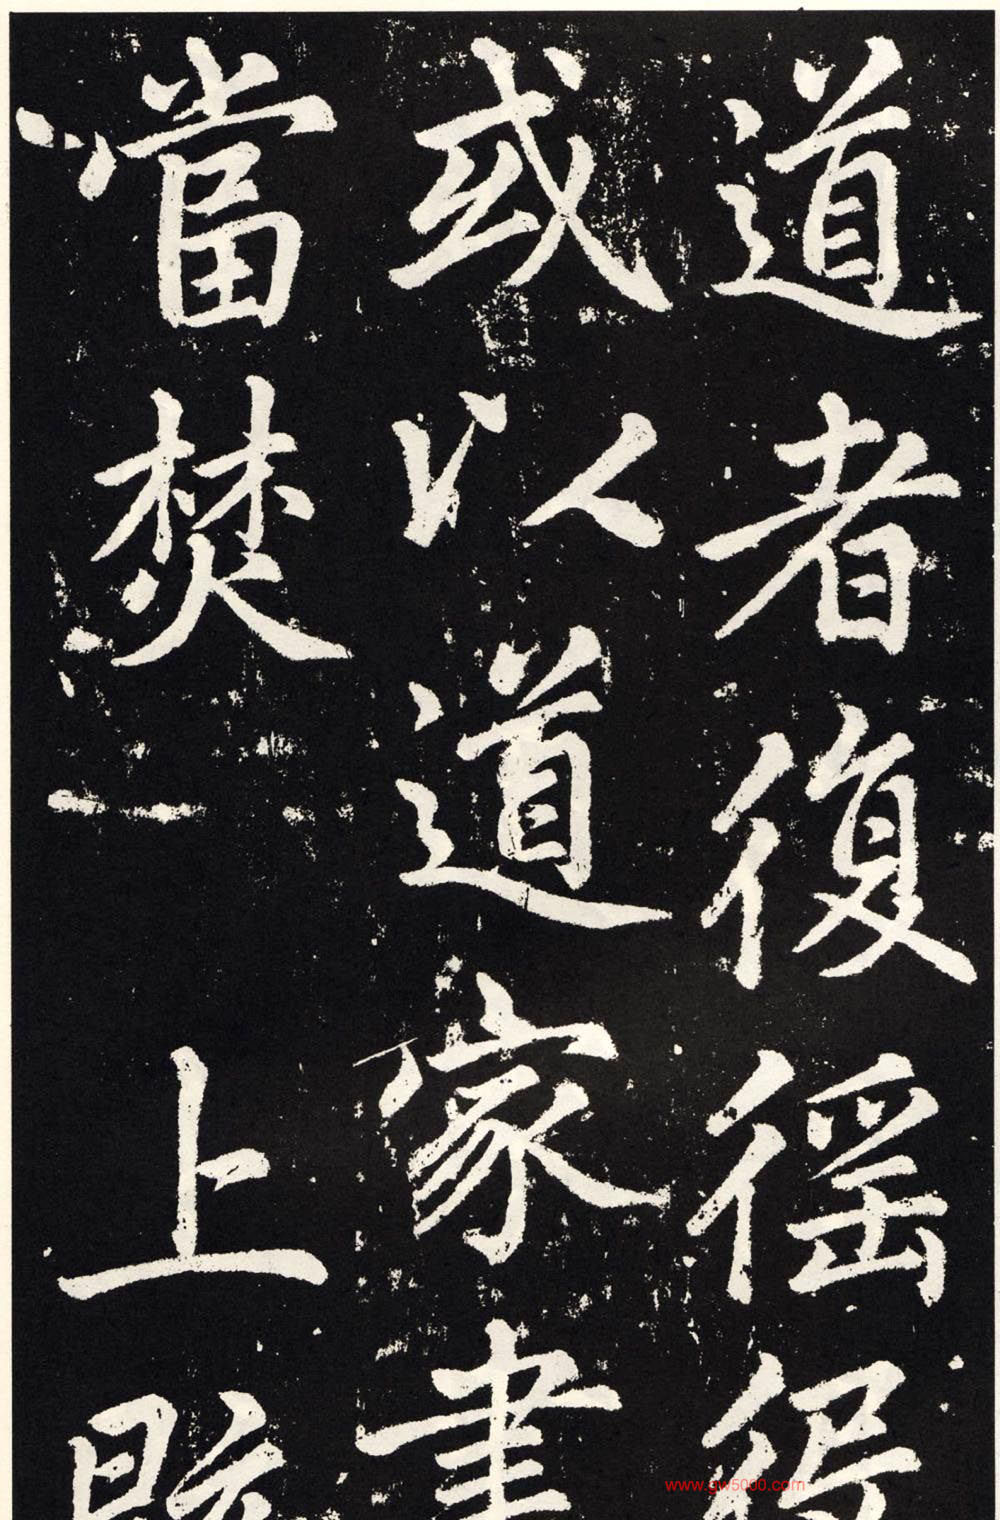 道者復徭得
或以道家書
當焚上
www.gw5000.com